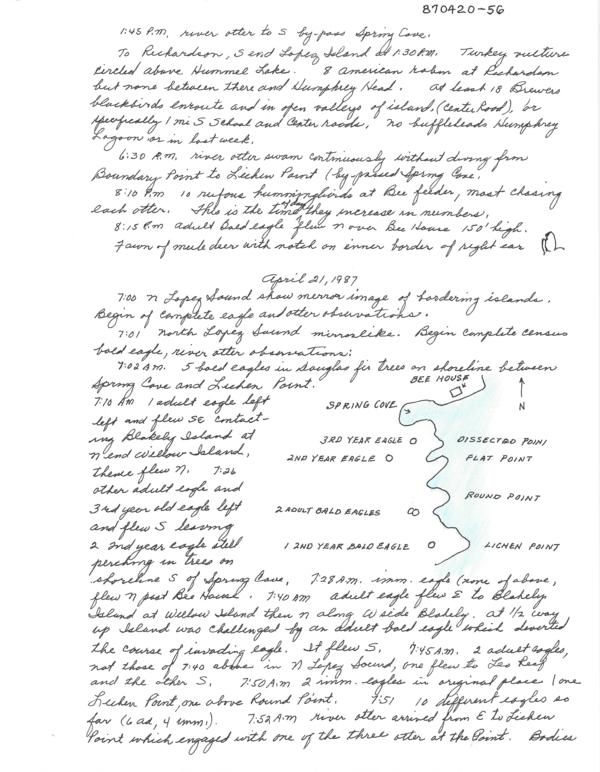 870420-56
1:45 P.M. river otter to S by-pass Spring Cove.
To Richardson, S end Lopez Island at 1:30 P.M. Turkey vulture
circled above Hummel Lake. 8 American robin at Richardson
but none between there and Humphrey Head. At least 18 Brewers
blackbirds enroute and in open valleys of island. (Center Road), or
specifically 1 mi S School and Center roads, no buffleheads Humphrey
Lagoon or in last week.
6:30 P.M. river otter swam continuously without diving from
Boundary Point to Lichen Point (by-passed Spring Cove.
8:10 P.M 10 rufous hummingbirds at Bee feeder, most chasing
each other. This is the time of day they increase in numbers.
8:15 P.M adult Bald eagle flew N over Bee House 150' high.
Fawn of mule deer with notch on inner border of right ear
April 21, 1987
7:00 N Lopez Sound show mirror image of bordering islands.
Begin of complete eagle and otter observations.
7:01 North Lopez Sound mirrorlike. Begin complete census
bald eagle, river otter observations:
7:02 A.M. 5 bald eagles in Douglas fir trees on shoreline between
Spring Cove and Lichen Point.
7:10 AM 1 adult eagle left
left and flew SE contact-
ing Blakely Island at
N end Willow Island,
thence flew N. 7:26
other adult eagle and
3rd year old eagle left
and flew S leaving
2 2nd year eagle still
perching in trees on
shoreline S of Spring Cove,
BEE HOUSE
SPRING COVE
N
3RD YEAR EAGLE
DISSECTED POINT
2ND YEAR EAGLE
FLAT POINT
ROUND POINT
2 ADULT BALD EAGLES
1 2ND YEAR BALD EAGLE
LICHEN POINT
7:28 A.M. imm. eagle (none of above,
flew N past Bee House. 7:40 AM adult eagle flew E to Blakely
Island at Willow Island then N along W side Blakely. at 1/2 way
up Island was challenged by an adult bald eagle which diverted
the course of invading eagle. It flew S. 7:45 A.M. 2 adult eagles,
not those of 7:40 above in N Lopez Sound, one flew to Leo Reef
and the other S. 7:50 A.M 2 imm. eagles in original place 1 one
Lichen Point, one above Round Point. 7:51 10 different eagles so
far (6 ad, 4 imm.). 7:52 A.M river otter arrived from E to Lichen
Point which engaged with one of the three otter at the Point. Bodies